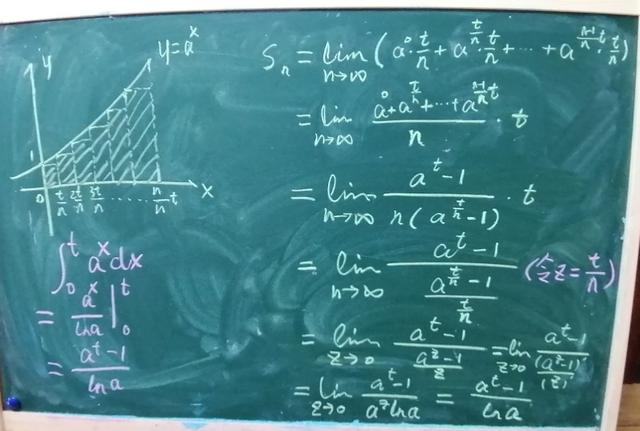 y
y=a^x
1
0 t/n 2t/n 3t/n ...... n/n t x
∫_0^t a^x dx
= a^x/lna |_0^t
= (a^t-1)/lna
S_n = lim_{n→∞} (a^0·t/n + a^{t/n}·t/n + ··· + a^{(n-1)/n t}·t/n)
= lim_{n→∞} (a^0+a^{t/n}+···+a^{(n-1)/n t})/n · t
= lim_{n→∞} (a^t-1)/(n(a^{t/n}-1)) · t
= lim_{n→∞} (a^t-1)/((a^{t/n}-1)/(t/n)) (令z=t/n)
= lim_{z→0} (a^t-1)/((a^z-1)/z) = lim_{z→0} (a^t-1)/((a^z-1)'/(z)')
= lim_{z→0} (a^t-1)/(a^z lna) = (a^t-1)/lna